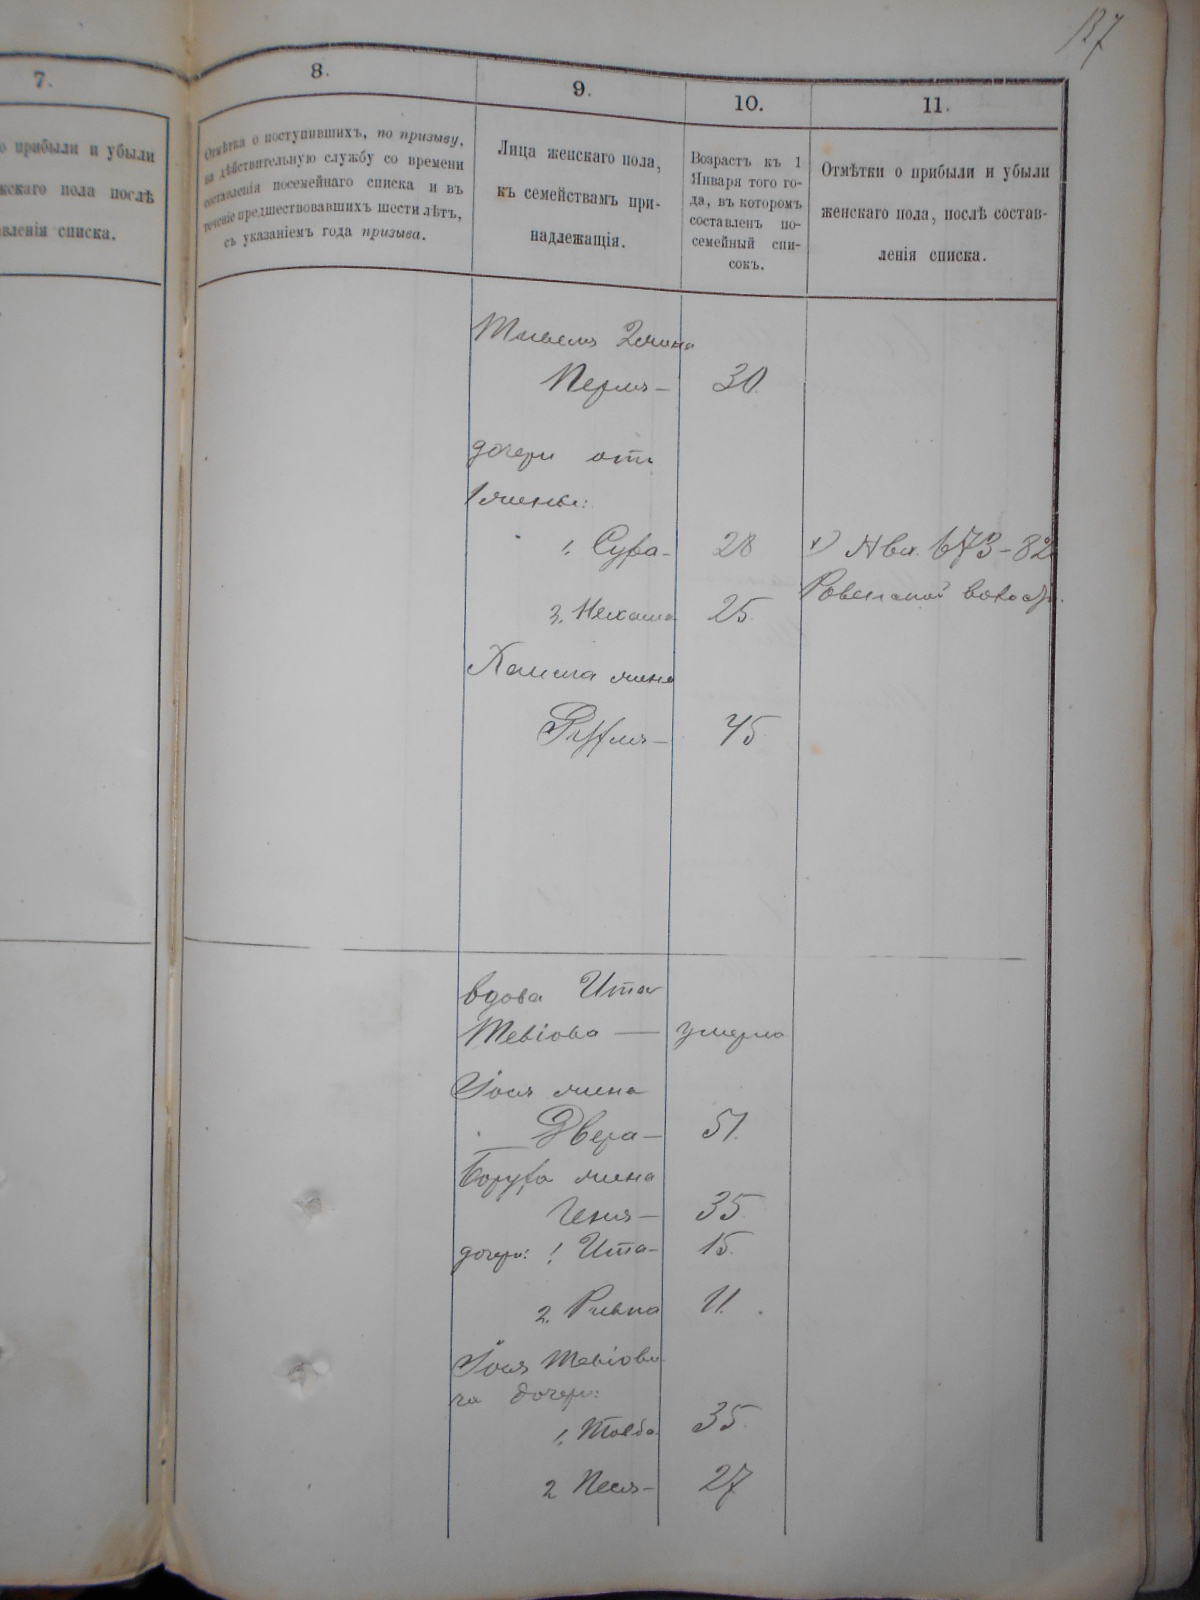 137
7.
8.
9.
10.
11.
о прибыли и убыли
жскаго пола послѣ
авленія списка.
Отмѣтка о поступившихъ, по призыву,
на дѣйствительную службу со времени
составленія посемейнаго списка и въ
теченіе предшествовавшихъ шести лѣтъ,
съ указаніемъ года призыва.
Лица женскаго пола,
къ семействамъ при-
надлежащія.
Возрастъ къ 1
Января того го-
да, въ которомъ
составленъ по-
семейный спи-
сокъ.
Отмѣтки о прибыли и убыли
женскаго пола, послѣ состав-
ленія списка.
2 жена
Перля — 30.
дочери отъ
1 жены:
1. Сура — 28
673 – 82
2. 25.
жена
Рухля — 45
вдова Ита
Тевіова — умерла
Іося жена
Двера — 51.
Боруха жена
Геня — 35
дочери: 1 Ита — 15.
2. Ривка 11.
Іося Тевіови-
ча дочери:
1. Товба 35.
2 Песя — 27